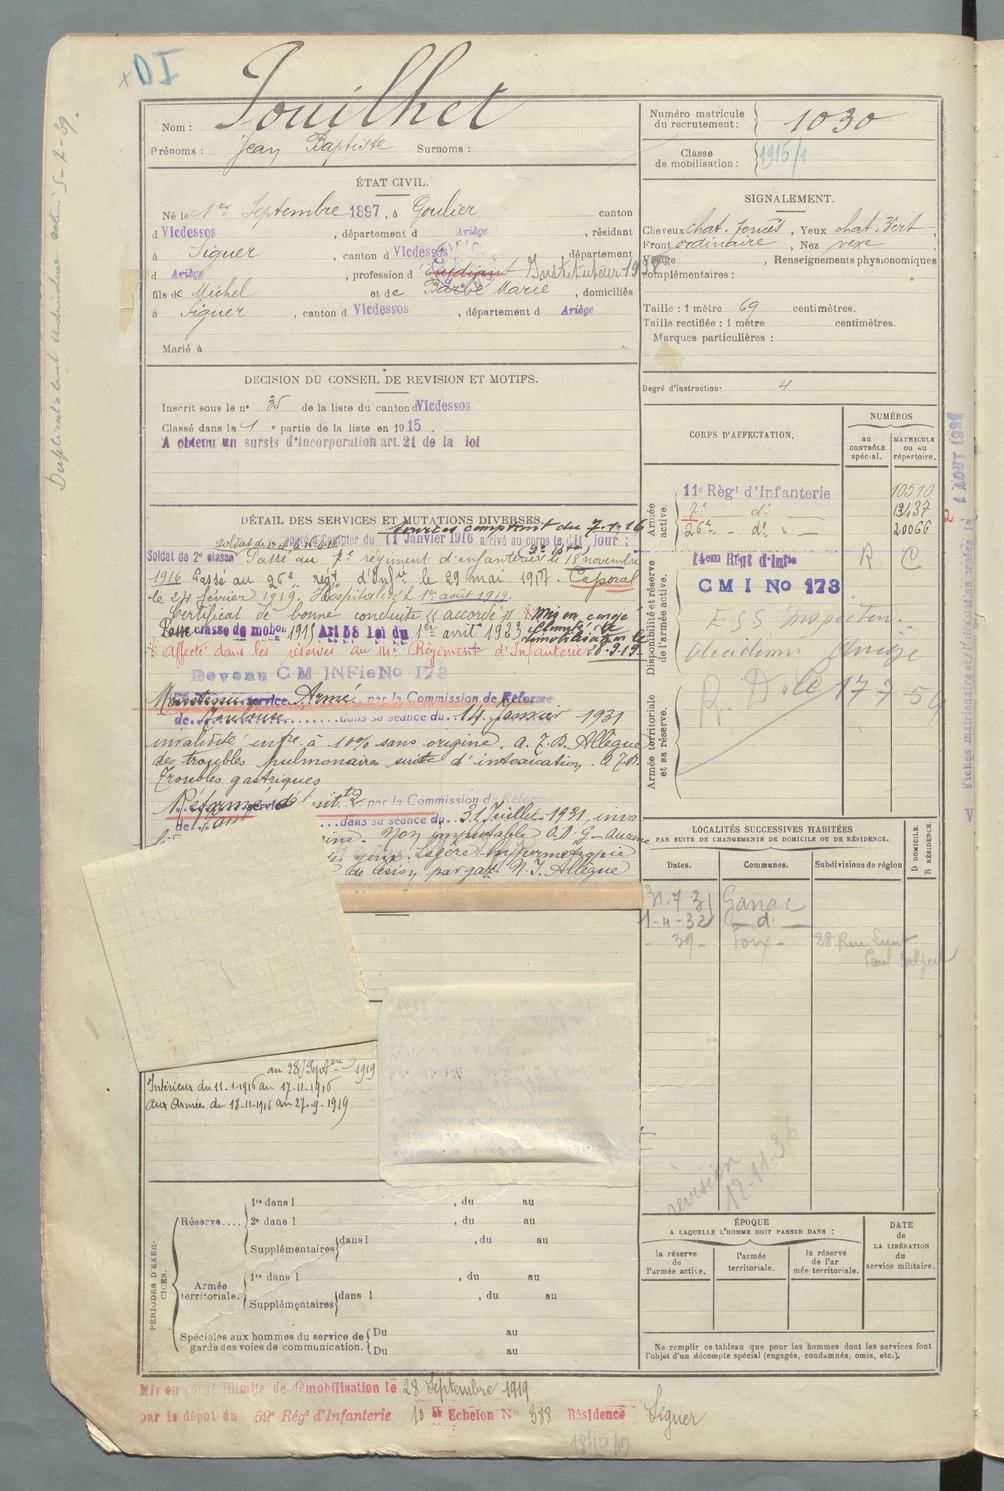 DI
Nom : Jouilhet
Prénoms : Jean Baptiste Surnoms :
Numéro matricule du recrutement : 1030
Classe de mobilisation : 1915/1
ÉTAT CIVIL.
Né le 1er Septembre 1897, à Goulier canton
d Vicdessos, département d Ariège, résidant
à Siguer, canton d Vicdessos, département
d Ariège, profession d Etudiant Instituteur
fils de Michel et de Barbe Marie, domiciliés
à Siguer, canton d Vicdessos, département d Ariège
Marié à
SIGNALEMENT.
Cheveux chat. foncés, Yeux chat. vert,
Front ordinaire, Nez vexe
Visage, Renseignements physionomiques
complémentaires :
Taille : 1 mètre 69 centimètres.
Taille rectifiée : 1 mètre centimètres.
Marques particulières :
Degré d'instruction : 4
DECISION DU CONSEIL DE REVISION ET MOTIFS.
Inscrit sous le n° 35 de la liste du canton d Vicdessos
Classé dans la 1e partie de la liste en 1915.
A obtenu un sursis d'incorporation art. 21 de la loi
DÉTAIL DES SERVICES ET MUTATIONS DIVERSES.
services comptant du 7.1.16
à compter du 11 Janvier 1916 arrivé au corps le dit jour ;
Soldat de 2e classe Passé au 7e régiment d'infanterie le 18 novembre
1916 Passé au 26e rég d'Infie le 29 mai 1917. Caporal
le 24 février 1919. Hospitalisé le 1er août 1919.
Certificat de bonne conduite "accordé". Mis en congé
illimité de
Passé classe de mob 1915 Art 58 Loi du 1er avril 1923 démobilisation le
28-9-19
Affecté dans les réserves au 14e Régiment d'Infanterie
Devenu C M INFie No 173
Maintenu service Armé par la Commission de Réforme
de Toulouse dans sa séance du 14 Janvier 1931
invalidité infre à 10% sans origine. A.T.D. Allègue
des troubles pulmonaires suite d'intoxication.
Troubles gastriques
Réformé par la Commission de Réforme
de dans sa séance du 31 Juillet 1931, inva
Non imputable aucune
yeux. Légère hypermétropie
de lésion par gaz. Allègue
au 28 Septbre 1919
Intérieur du 11-1-1916 au 17-11-1916
aux Armées du 18-11-1916 au 27-9-1919
CORPS D'AFFECTATION.
NUMÉROS
AU CONTRÔLE spécial.
MATRICULE OU AU répertoire.
Armée active.
11e Régt d'Infanterie 10510
7e d° 12437
26e d° 20066
Disponibilité et réserve de l'armée active.
14em Régt d'Infie R C
C M I No 173
ESS Inspection
Académ Ariège
Armée territoriale et sa réserve.
R. D le 17 7 54
LOCALITÉS SUCCESSIVES HABITÉES
PAR SUITE DE CHANGEMENTS DE DOMICILE OU DE RÉSIDENCE.
Dates. Communes. Subdivisions de région
D DOMICILE.
R RÉSIDENCE.
31.7.31 Ganac
1-4-32 d°
39 Foix 28 Rue
révision
12-11-36
ÉPOQUE
A LAQUELLE L'HOMME DOIT PASSER DANS :
la réserve de l'armée active.
l'armée territoriale.
la réserve de l'armée territoriale.
DATE de LA LIBÉRATION du service militaire.
Ne remplir ce tableau que pour les hommes dont les services font
l'objet d'un décompte spécial (engagés, condamnés, omis, etc.).
PÉRIODES D'EXERCICES.
Réserve....
1re dans l , du au
2e dans l , du au
Supplémentaires dans l , du au
Armée territoriale.
1re dans l , du au
Supplémentaires dans l , du au
Spéciales aux hommes du service de garde des voies de communication.
Du au
Du au
Mis en congé illimité de démobilisation le 28 Septembre 1919
par le dépot du 59e Régt d'Infanterie 10 er Echelon No 388 Résidence Siguer